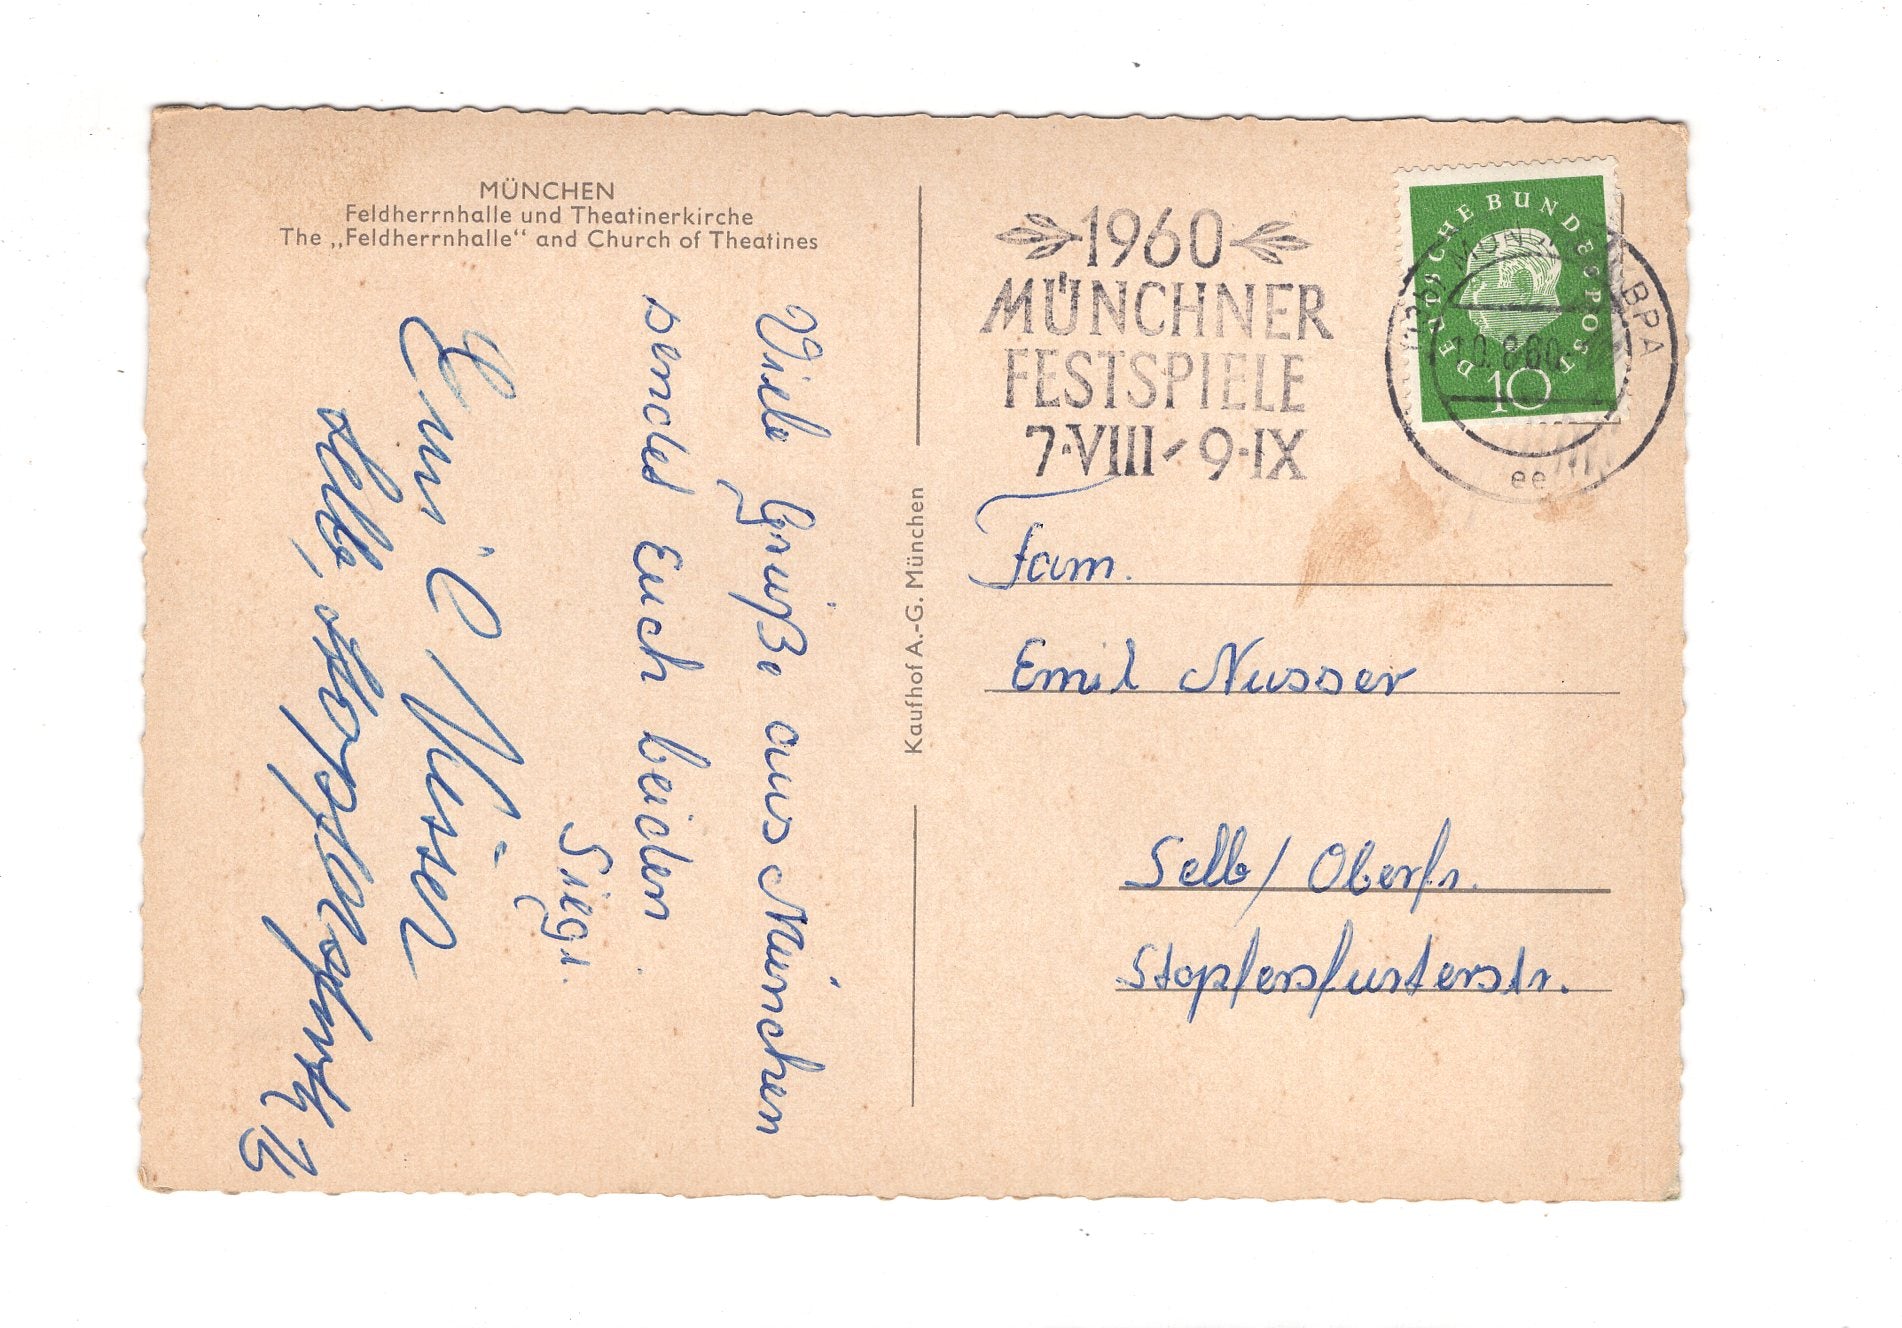 MÜNCHEN
Feldherrnhalle und Theatinerkirche
The „Feldherrnhalle“ and Church of Theatines
Viele Grüße aus München
sendet Euch beiden
Siegr.
Emil Nusser
Selb, Stopfersfurth
Kaufhof A.-G. München
1960
MÜNCHNER
FESTSPIELE
7·VIII - 9·IX
DEUTSCHE BUNDESPOST
10
BPA
10.8.60
ee
Fam.
Emil Nusser
Selb/ Oberfr.
Stopfersfurterstr.